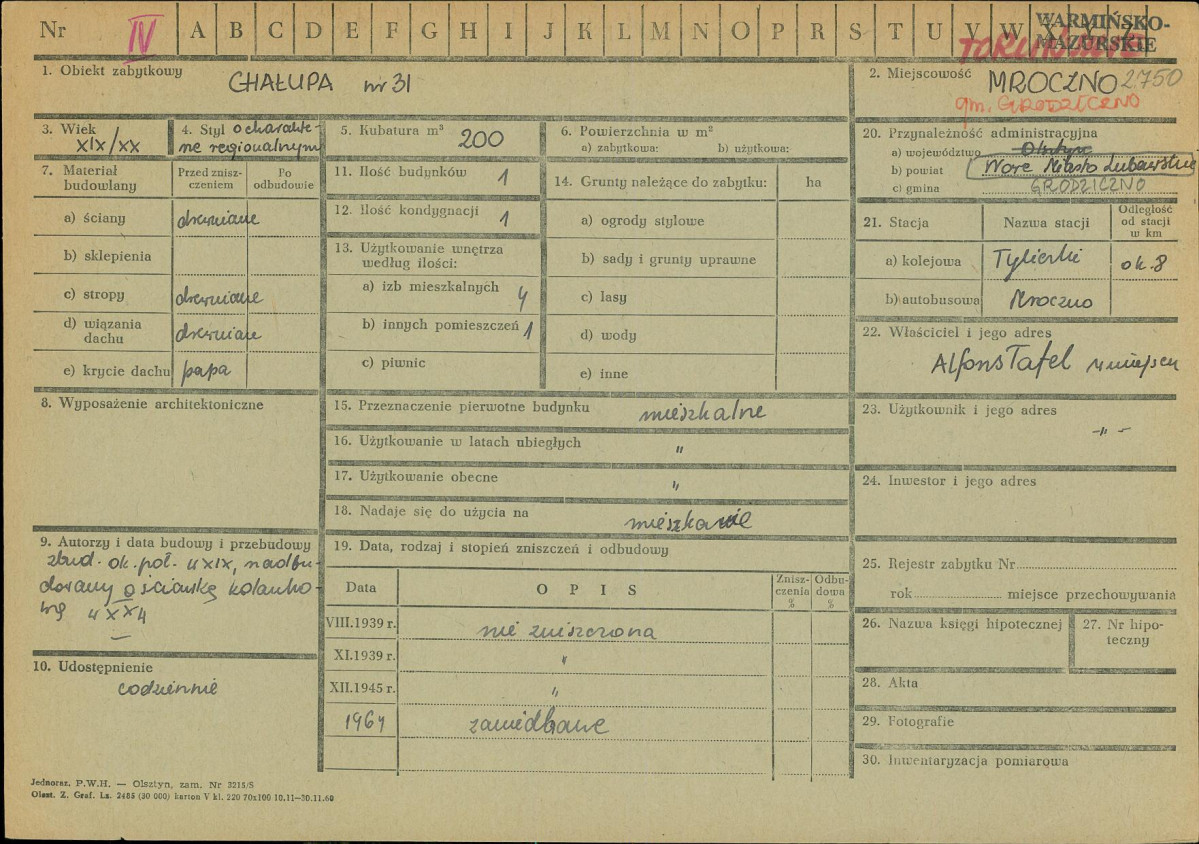 Nr IV A B C D E F G H I J K L M N O P R S T U V W
WARMIŃSKO-
MAZURSKIE
1. Obiekt zabytkowy
CHAŁUPA nr 31
2. Miejscowość
MROCZNO 2.750
gm. GRODZICZNO
3. Wiek
XIX/XX
4. Styl o charakte-
rze regionalnym
5. Kubatura m³ 200
6. Powierzchnia w m²
a) zabytkowa: b) użytkowa:
7. Materiał
budowlany
Przed znisz-
czeniem
Po
odbudowie
a) ściany drewniane
b) sklepienia
c) stropy drewniane
d) wiązania
dachu drewniane
e) krycie dachu papa
8. Wyposażenie architektoniczne
9. Autorzy i data budowy i przebudowy
zbud. ok. poł. w XIX, nadbu-
dowany o ściankę kolanko-
wą w XX
10. Udostępnienie
codziennie
11. Ilość budynków 1
12. Ilość kondygnacji 1
13. Użytkowanie wnętrza
według ilości:
a) izb mieszkalnych 4
b) innych pomieszczeń 1
c) piwnic
14. Grunty należące do zabytku: ha
a) ogrody stylowe
b) sady i grunty uprawne
c) lasy
d) wody
e) inne
15. Przeznaczenie pierwotne budynku mieszkalne
16. Użytkowanie w latach ubiegłych "
17. Użytkowanie obecne "
18. Nadaje się do użycia na mieszkanie
19. Data, rodzaj i stopień zniszczeń i odbudowy
Data
OPIS
Znisz-
czenia
%
Odbu-
dowa
%
VIII.1939 r. nie zniszczona
XI.1939 r. "
XII.1945 r. "
1964 zaniedbane
20. Przynależność administracyjna
a) województwo Olsztyn
b) powiat Nowe Miasto Lubawskie
c) gmina GRODZICZNO
21. Stacja
Nazwa stacji
Odległość
od stacji
w km
a) kolejowa ok. 8
b) autobusowa Mroczno
22. Właściciel i jego adres
Alfons Tafel w miejscu
23. Użytkownik i jego adres
-"-
24. Inwestor i jego adres
25. Rejestr zabytku Nr
rok miejsce przechowywania
26. Nazwa księgi hipotecznej
27. Nr hipo-
teczny
28. Akta
29. Fotografie
30. Inwentaryzacja pomiarowa
Jednoraz. P.W.H. — Olsztyn, zam. Nr 3215/S
Olszt. Z. Graf. Ls. 2485 (30 000) karton V kl. 220 70x100 10.11—30.11.60